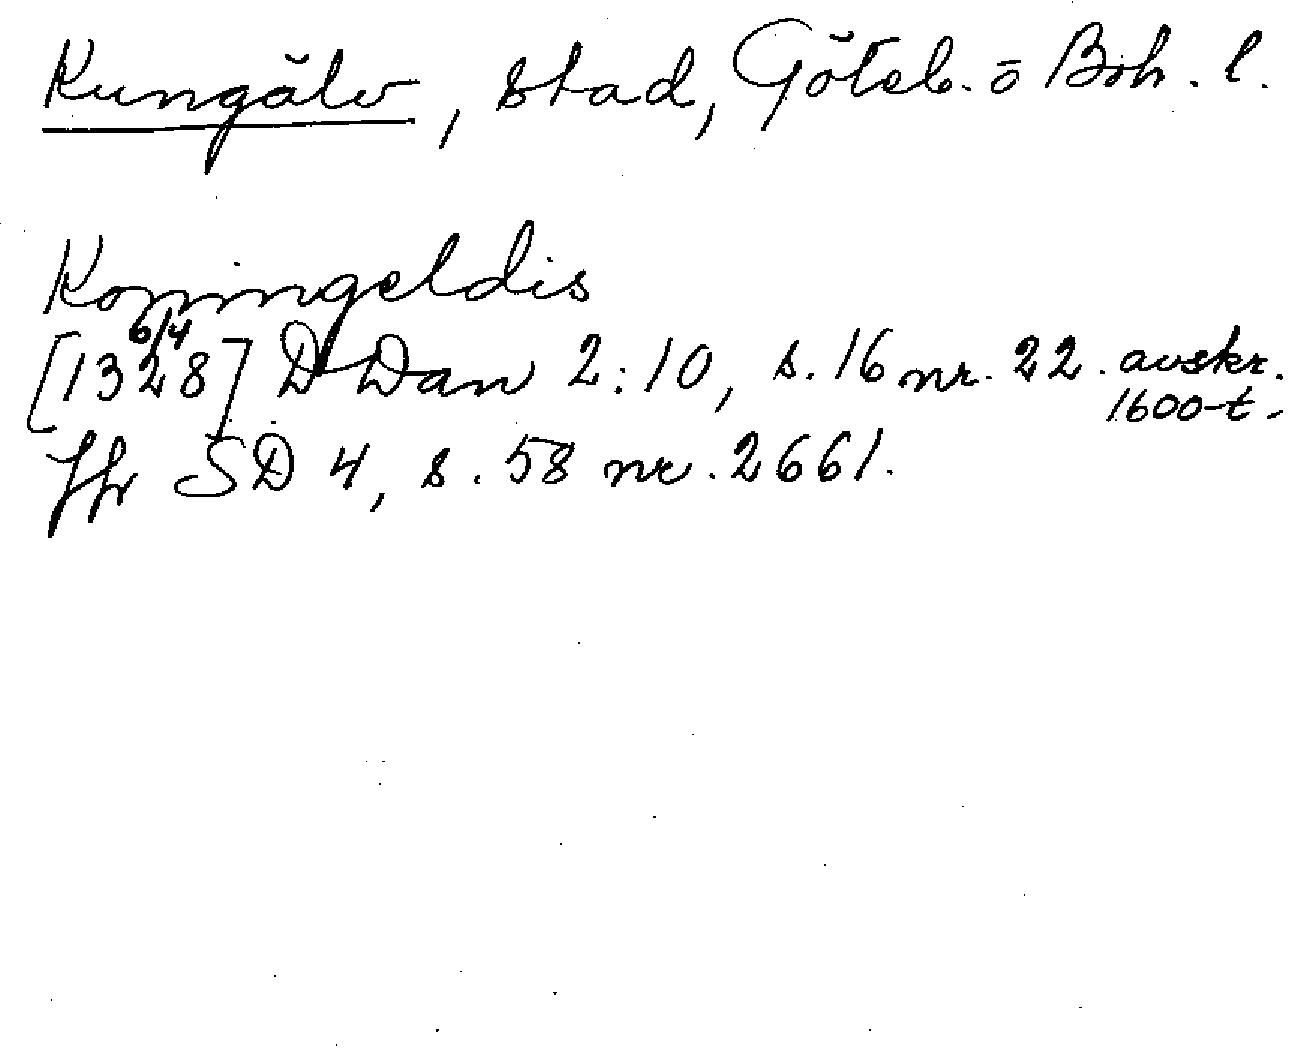 Kungälv, stad, Göteb. o Boh. l.
Koningeldis
[1328] 6/4 DDan 2:10, s. 16 nr. 22. avskr.
1600-t.
Jfr SD 4, s. 58 nr. 2661.